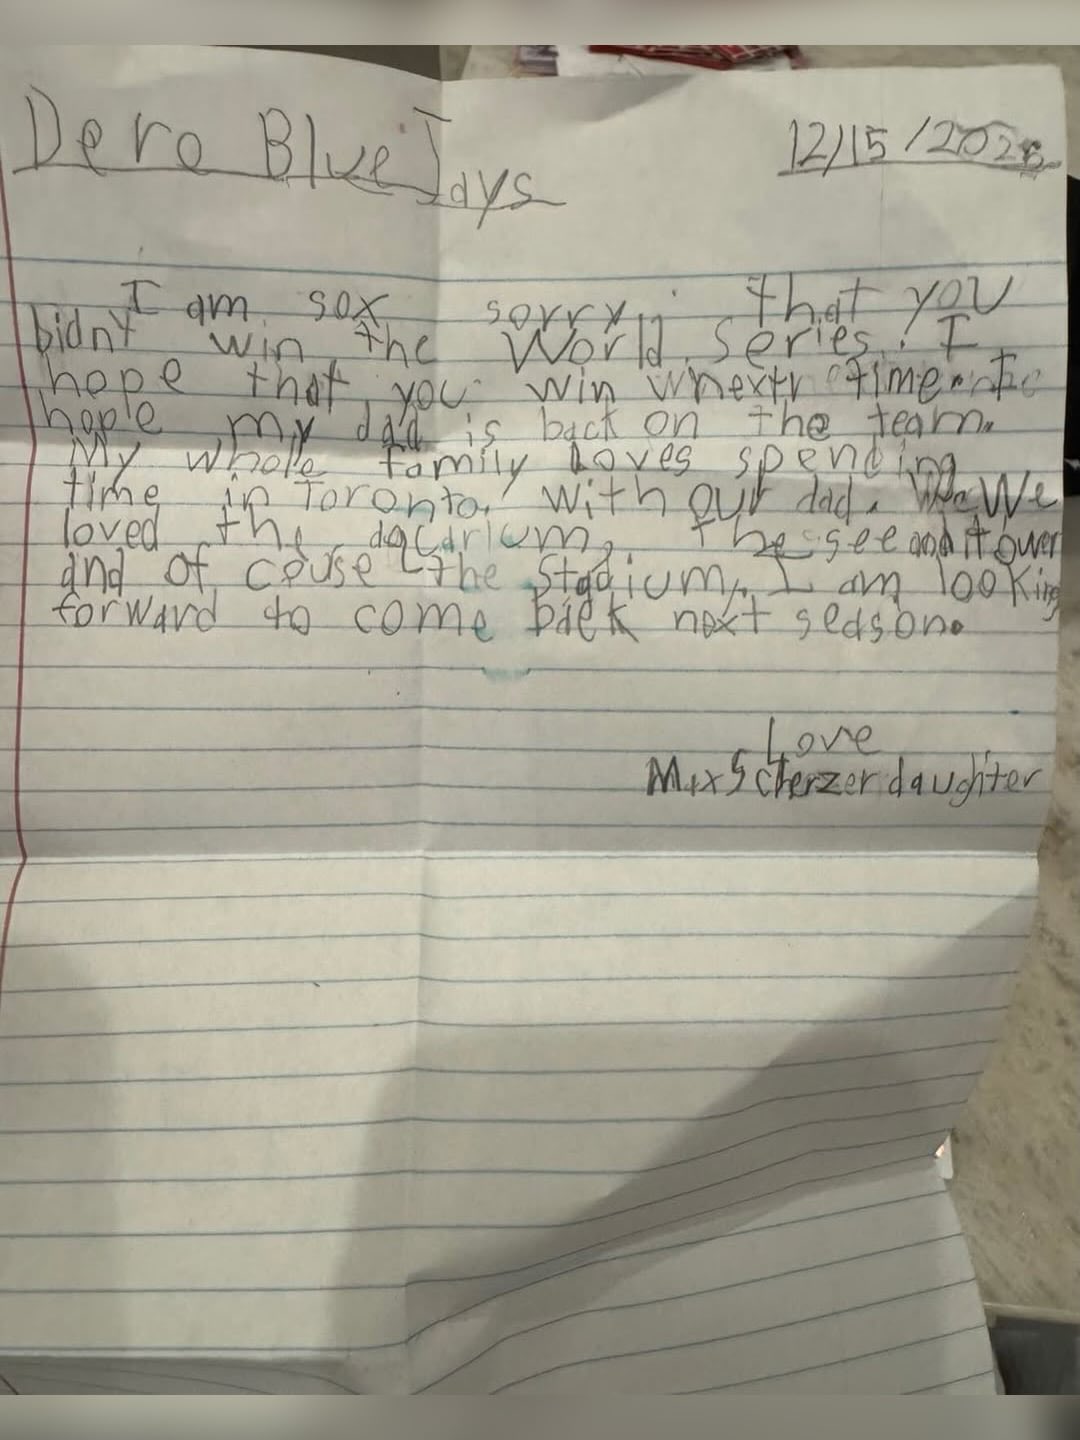 Dero Blue Jays
12/15/2025
I am sox sorry that you
bidnt win the World series. I
hope that you win next time. I
hople my dad is back on the team.
My whole family Loves spending
time in Toronto. With our dad. We
loved the aqcarium, the see and it ower
and of couse the Stadium. I am looking
forward to come back next season.
Love
Max Scherzer daughter